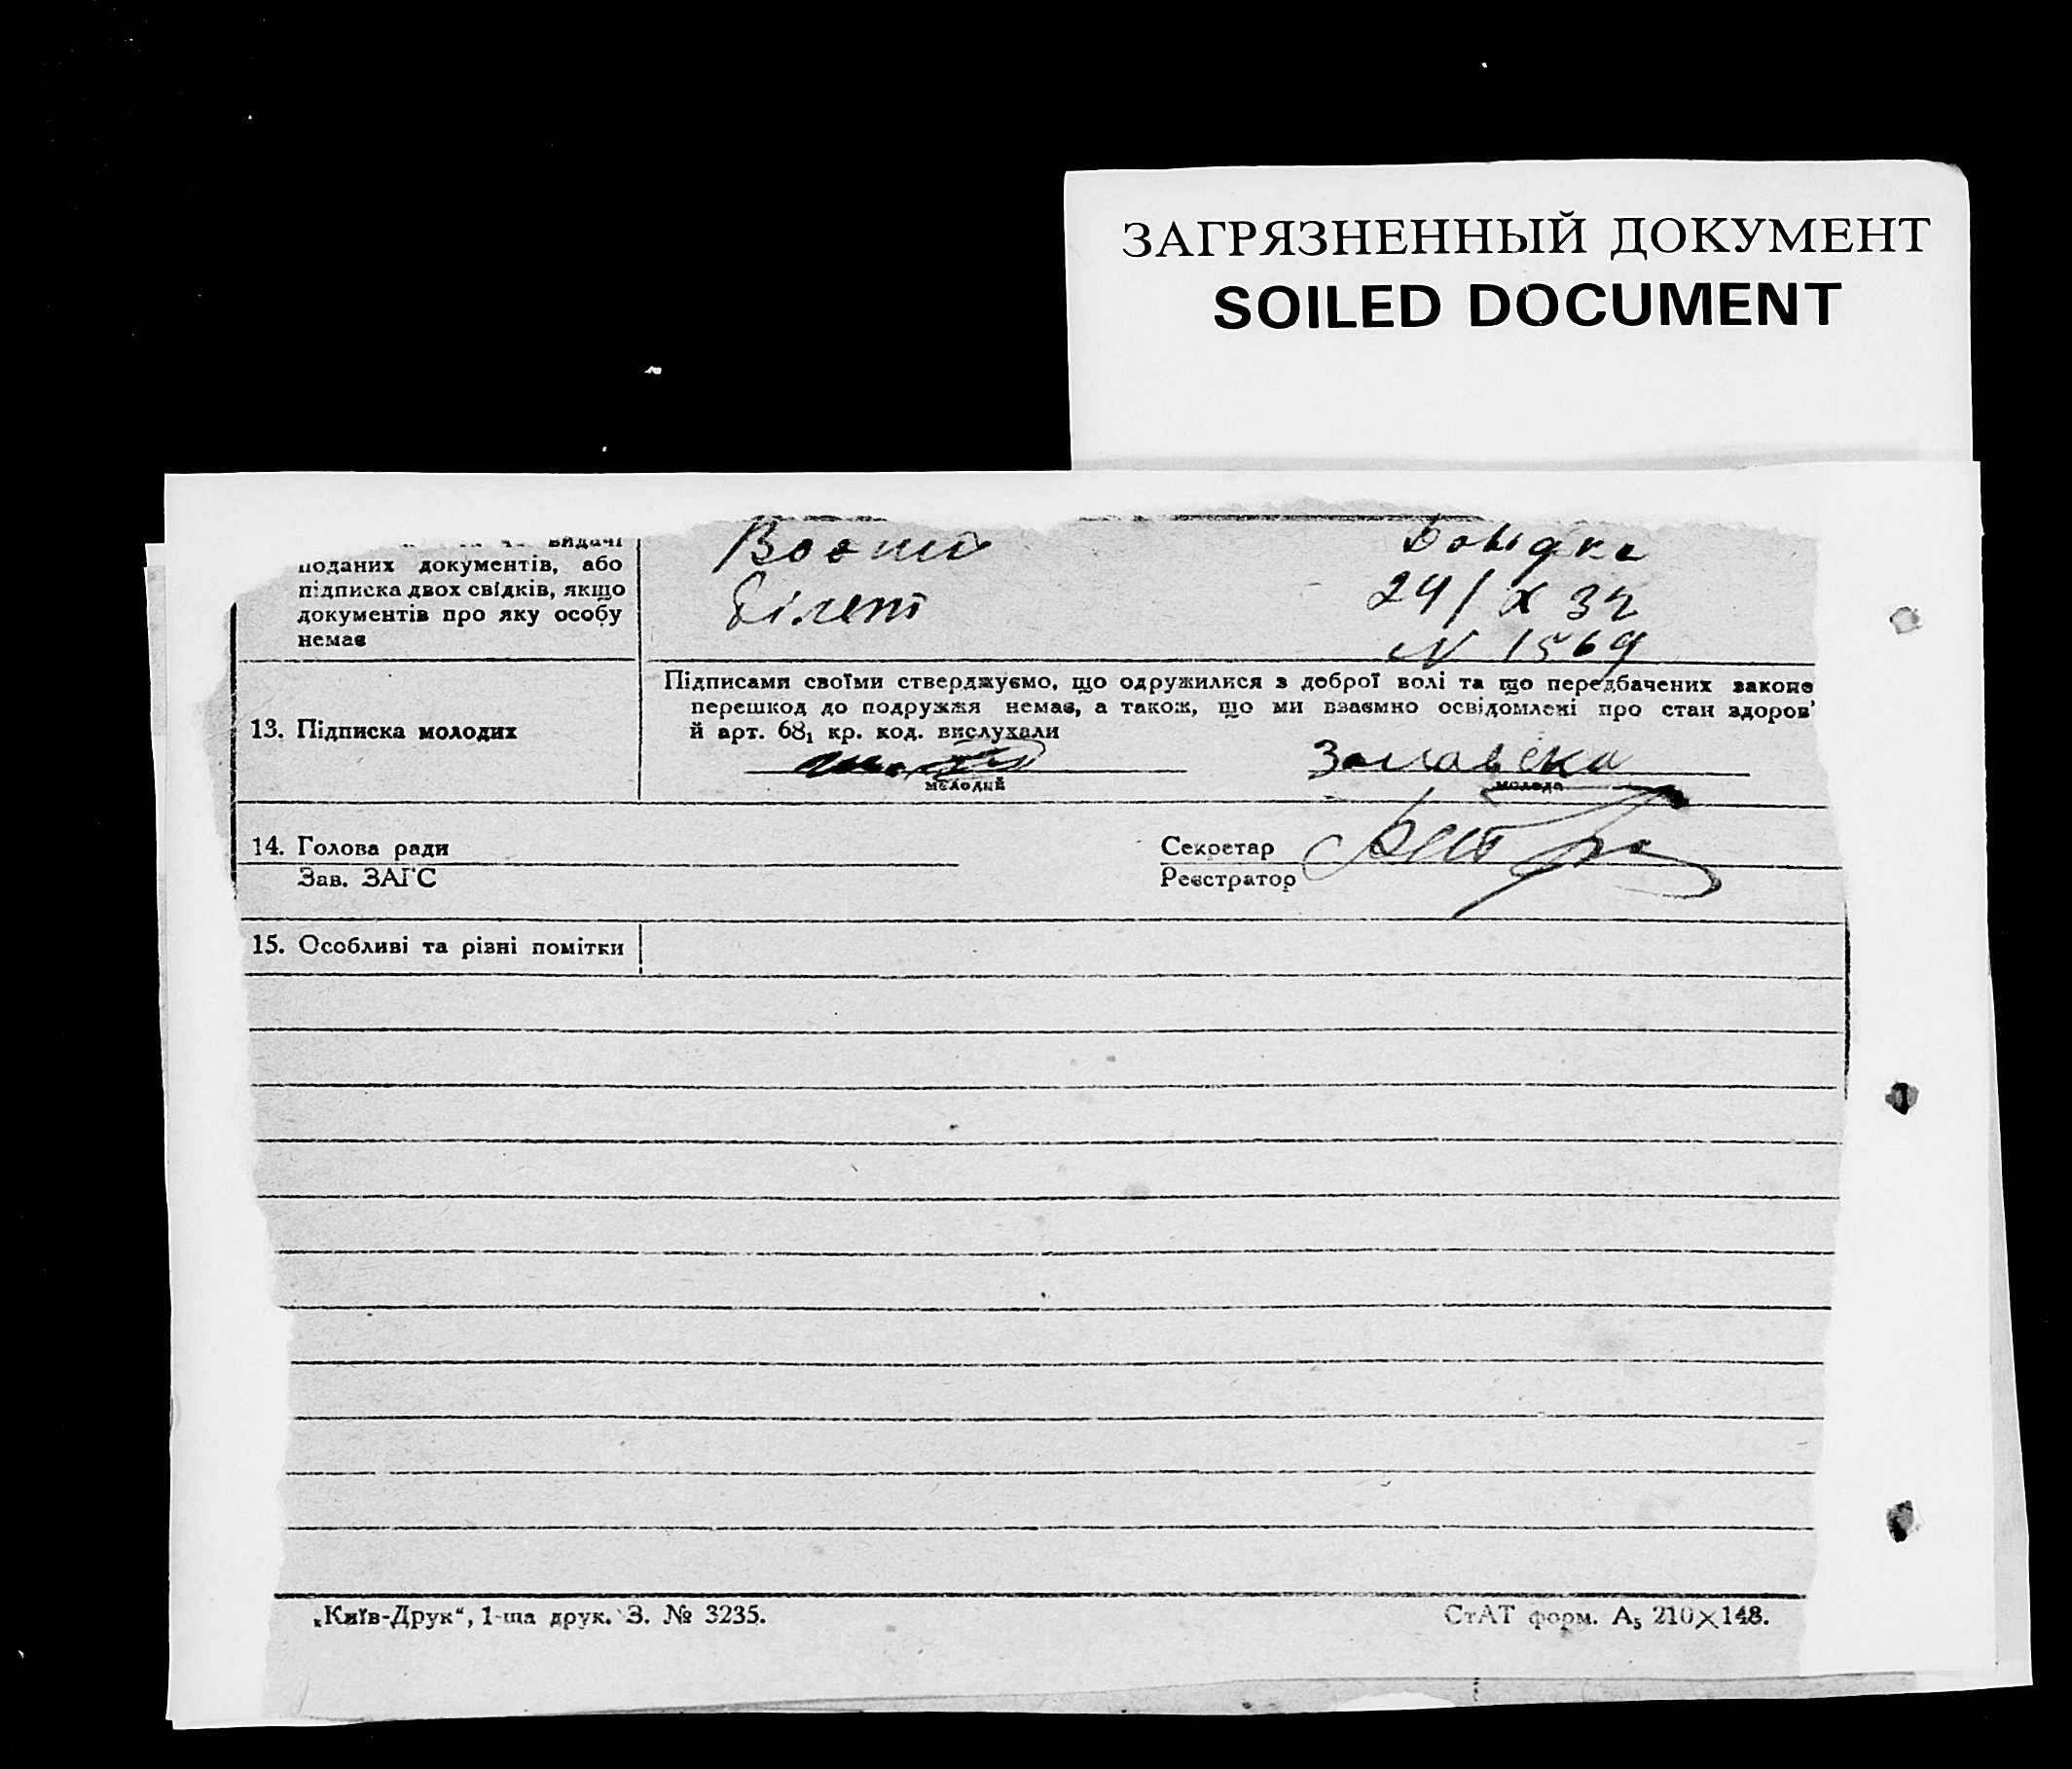 ЗАГРЯЗНЕННЫЙ ДОКУМЕНТ
SOILED DOCUMENT
видачі
поданих документів, або
підписка двох свідків, якщо
документів про яку особу
немає
Воєний
білет
Довідка
24/X 32
N 1569
13. Підписка молодих
Підписами своїми стверджуємо, що одружилися з доброї волі та що передбачених законо
перешкод до подружжя немає, а також, що ми взаємно освідомлені про стан здоров'
й арт. 68₁ кр. код. вислухали
молодий
молода
14. Голова ради
Зав. ЗАГС
Секретар
Реєстратор
15. Особливі та різні помітки
„Київ-Друк“, 1-ша друк. З. № 3235.
СтАТ форм. А₅ 210×148.